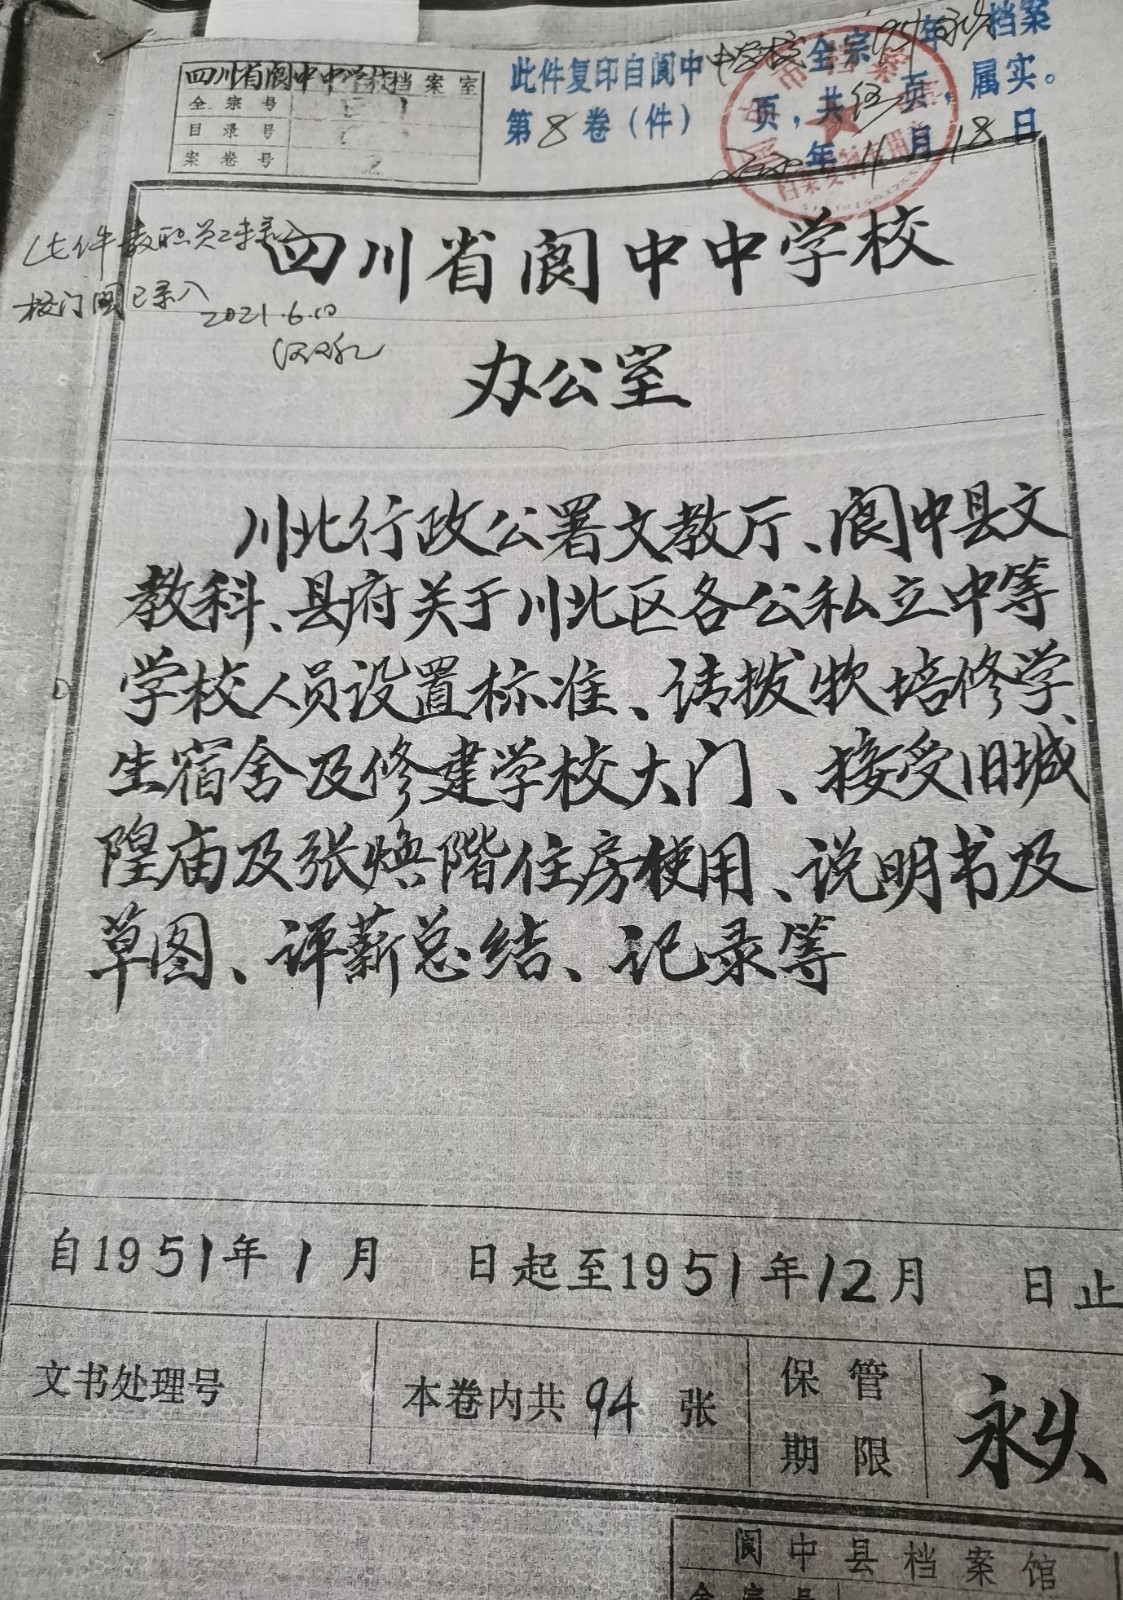 四川省阆中中学校档案室
全宗号
目录号
案卷号
此件复印自阆中中学校全宗1951年永久档案
第8卷(件) 页,共 页,属实。
2020年11月18日
档案复制专用章
(七件教职员已录入)
校门图已录入
2021.6.10
四川省阆中中学校
办公室
川北行政公署文教厅、阆中县文
教科、县府关于川北区各公私立中等
学校人员设置标准、请拨款培修学
生宿舍及修建学校大门、接受旧城
隍庙及张焕阶住房使用、说明书及
草图、评薪总结、记录等
自1951年1月 日起至1951年12月 日止
文书处理号
本卷内共94张
保管
期限
永久
阆中县档案馆
全宗号